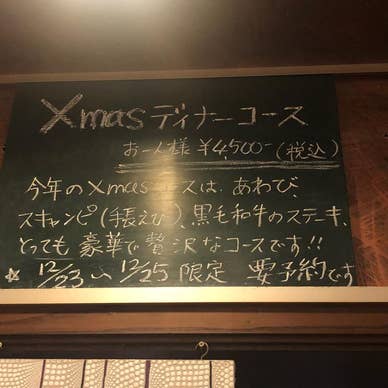 Xmasディナーコース
お一人様 ¥4,500-(税込)
今年のXmasコースは、あわび、
スキャンピ(手長えび)、黒毛和牛のステーキ、
とっても豪華で贅沢なコースです!!
☆ 12/23〜12/25限定 要予約です